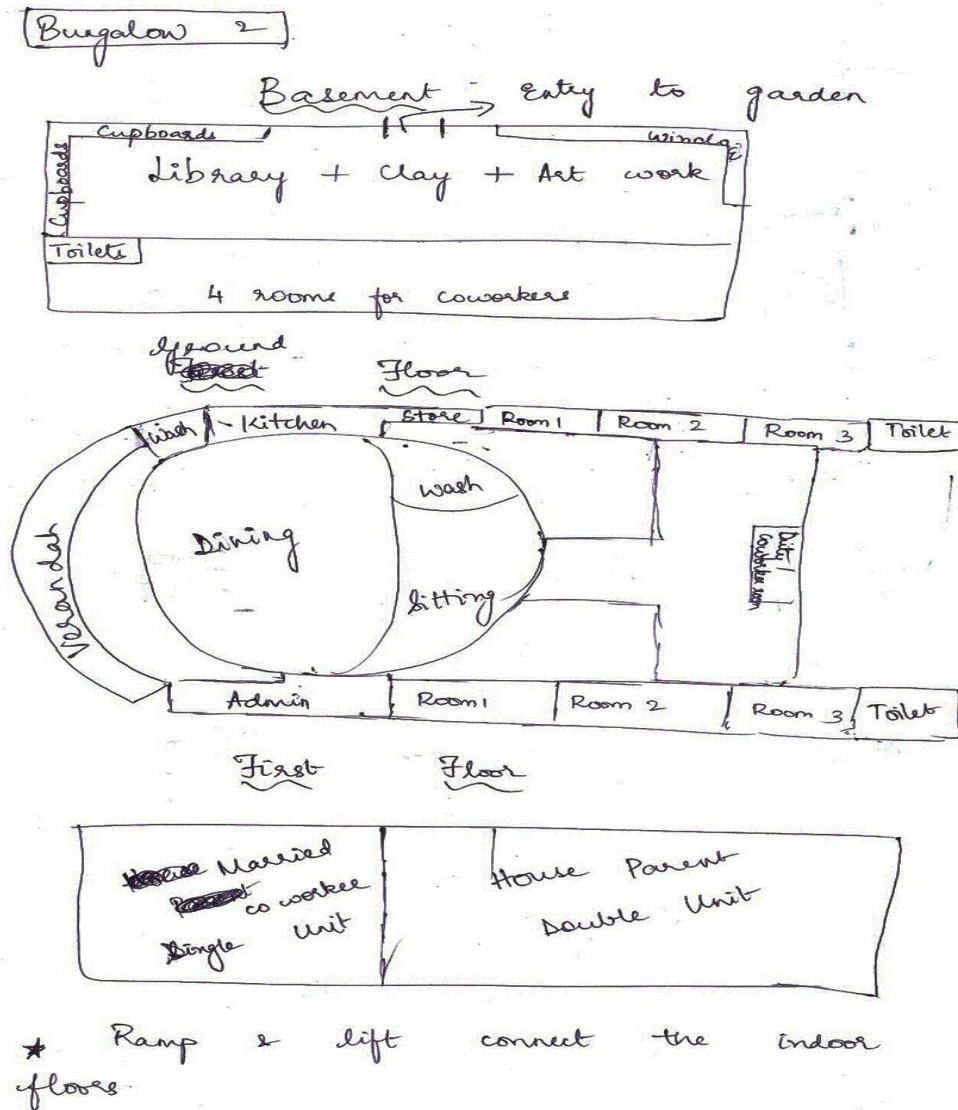 Bungalow 2
Basement - Entry to garden
Cupboards
Cupboards
Library + Clay + Art work
Toilets
4 rooms for coworkers
Ground Floor
Wash
Kitchen
Store
Room 1
Room 2
Room 3
Toilet
Verandah
Dining
Wash
Sitting
Duty /
Coworker room
Admin
Room 1
Room 2
Room 3
Toilet
First Floor
Married
co worker
Single Unit
House Parent
Double Unit
* Ramp & lift connect the indoor
floors.